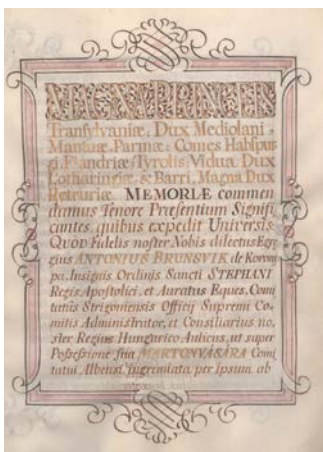 MAGNA PRINCEPS
Transylvaniæ, Dux Mediolani,
Mantuæ, Parmæ; Comes Habspur
gi, Flandriæ, Tyrolis, Vidua Dux
Lotharingiæ, & Barri, Magna Dux
Hetruriæ. MEMORIÆ commen
damus Tenore Præsentium Signifi
cantes, quibus expedit Universis.
QUOD Fidelis noster Nobis dilectus Egre
gius ANTONIUS BRUNSVIK de Korom
pa, Insignis Ordinis Sancti STEPHANI
Regis Apostolici, et Auratus Eques, Comi
tatûs Strigoniensis Officij Supremi Co
mitis Administrator, et Consiliarius no,
ster Regius Hungarico Aulicus, ut super
Possessione sua MARTONVÁSÁRA Comi
tatui Albensi ingremiata per Ipsum ab